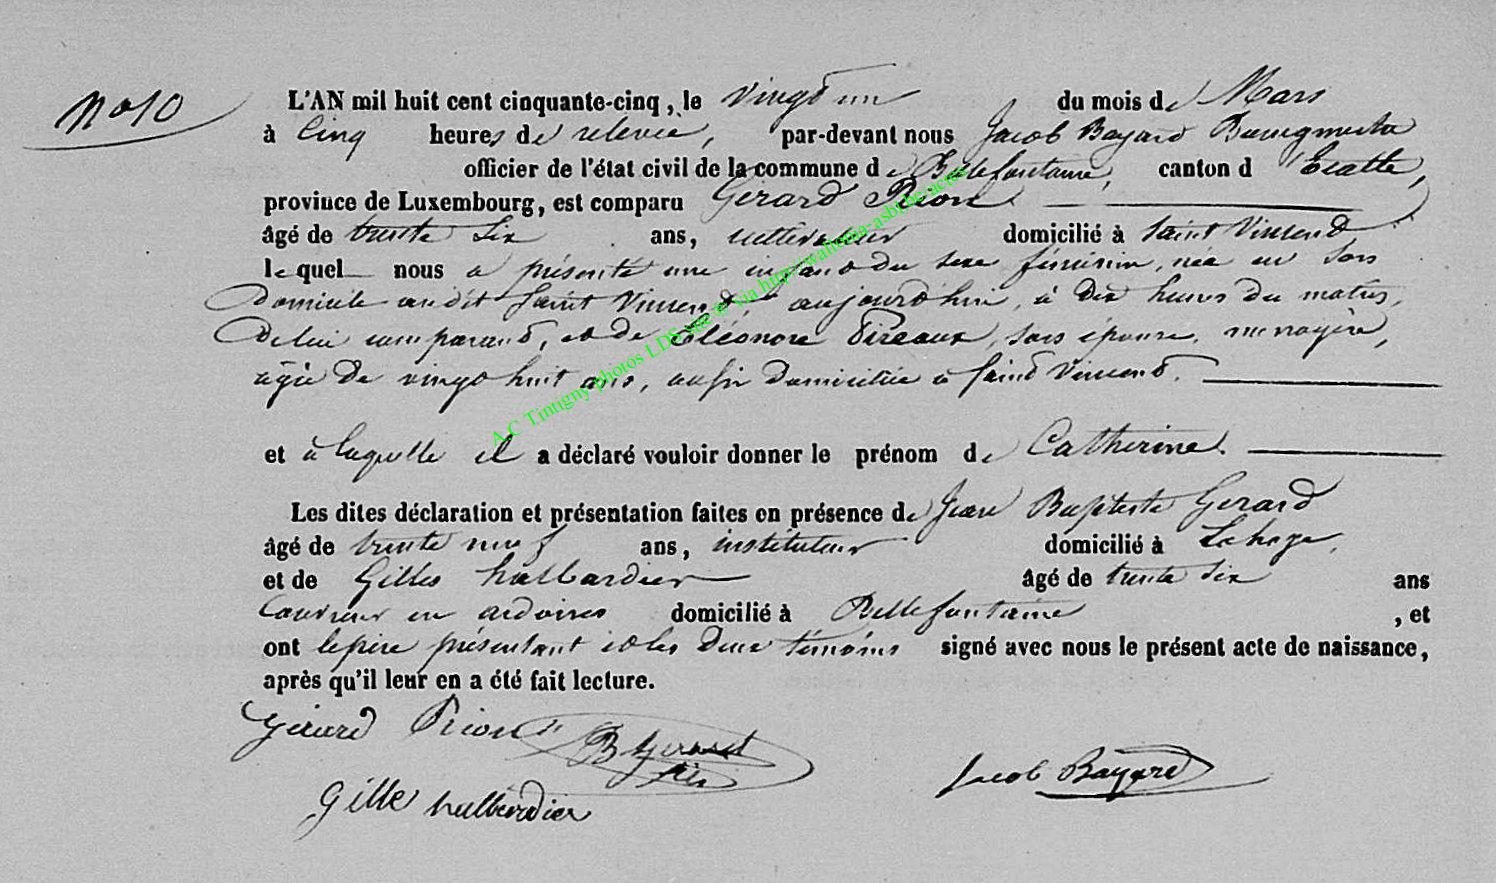 N° 10
L'AN mil huit cent cinquante-cinq, le vingt un du mois de Mars
à cinq heures de relevée, par-devant nous Jacob Bayard Bourgmestre
officier de l'état civil de la commune de Bellefontaine, canton d'Etalle,
province de Luxembourg, est comparu Gérard Rion
âgé de trente six ans, cultivateur domicilié à Saint Vincent
lequel nous a présenté une enfant du sexe féminin, née en son
domicile audit Saint Vincent, aujourd'hui, à dix heures du matin,
de lui comparant, et de Eléonore Pireaux, son épouse, ménagère,
âgée de vingt huit ans, aussi domiciliée à Saint Vincent.
et à laquelle il a déclaré vouloir donner le prénom de Catherine.
Les dites déclaration et présentation faites en présence de Jean Baptiste Gérard
âgé de trente neuf ans, instituteur domicilié à Lahage,
et de Gilles halbardier âgé de trente six ans
couvreur en ardoises domicilié à Bellefontaine, et
ont le père présentant et les deux témoins signé avec nous le présent acte de naissance,
après qu'il leur en a été fait lecture.
Gérard Rion JB Gerard
Gille halbardier Jacob Bayard
A.C Tintigny photos LDS via http://wallonia-asbl.be